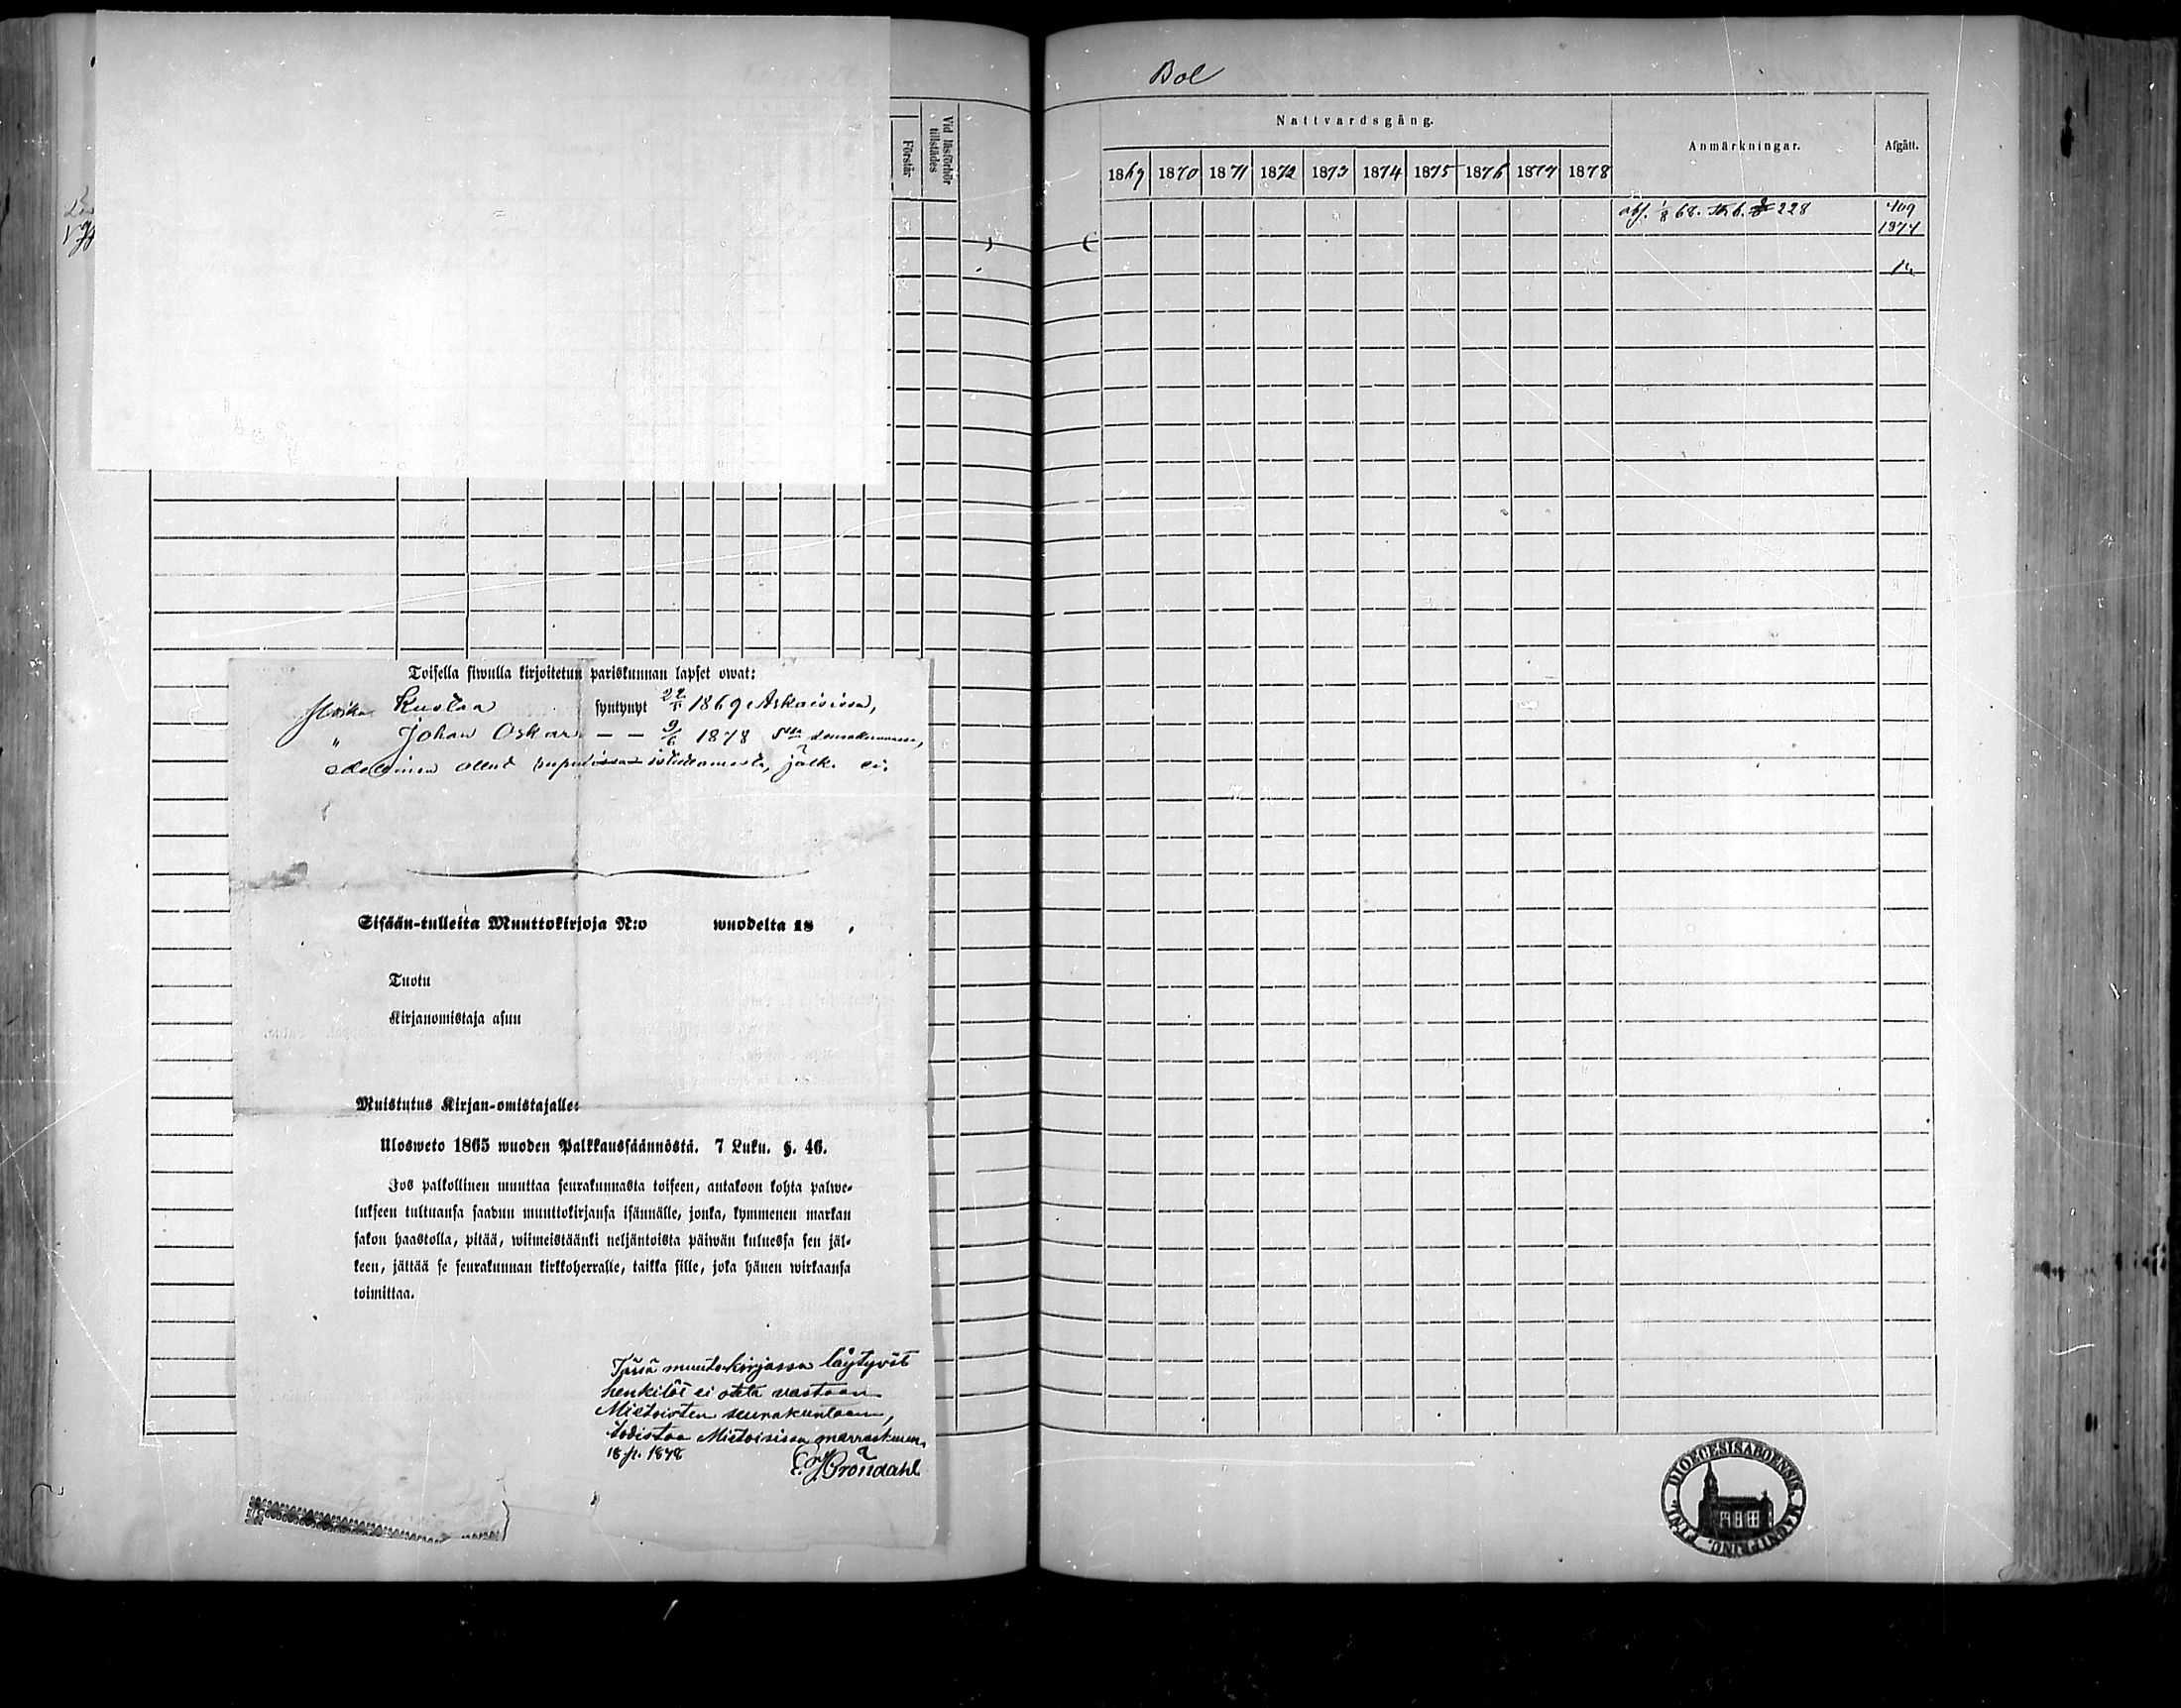 Förstår
Vid läsförhör tillstädes
Toisella siwulla kirjoitetun pariskunnan lapset owat:
Poika Kustaa syntynyt 22/1 1869 Askaisissa,
" Johan Oskar — — 9/6 1878
ollut jälk. ei.
Sisään-tulleita Muuttokirjoja N:o wuodelta 18 .
Tuotu
Kirjanomistaja asuu
Muistutus Kirjan-omistajalle:
Ulosweto 1865 wuoden Palkkaussäännöstä. 7 Luku. §. 46.
Jos palkollinen muuttaa seurakunnasta toiseen, antakoon kohta palwe-
lukseen tultuansa saadun muuttokirjansa isännälle, jonka, kymmenen markan
sakon haastolla, pitää, wiimeistäänki neljäntoista päiwän kuluessa sen jäl-
keen, jättää se seurakunnan kirkkoherralle, taikka sille, joka hänen wirkaansa
toimittaa.
Tässä muutokirjassa löytyvät
henkilöt ei oteta vastaan
Mietoisten seurakuntaan,
todistaa Mietoisissa marraskuun
18 p. 1878
E. J. Gröndahl
Bol
Nattvardsgång.
Anmärkningar.
Afgått.
1869 1870 1871 1872 1873 1874 1875 1876 1877 1878
abs. 1/8 68. 228
409
1374
DIOECESIS ABOENSIS MAGNI PRINC. FINL.